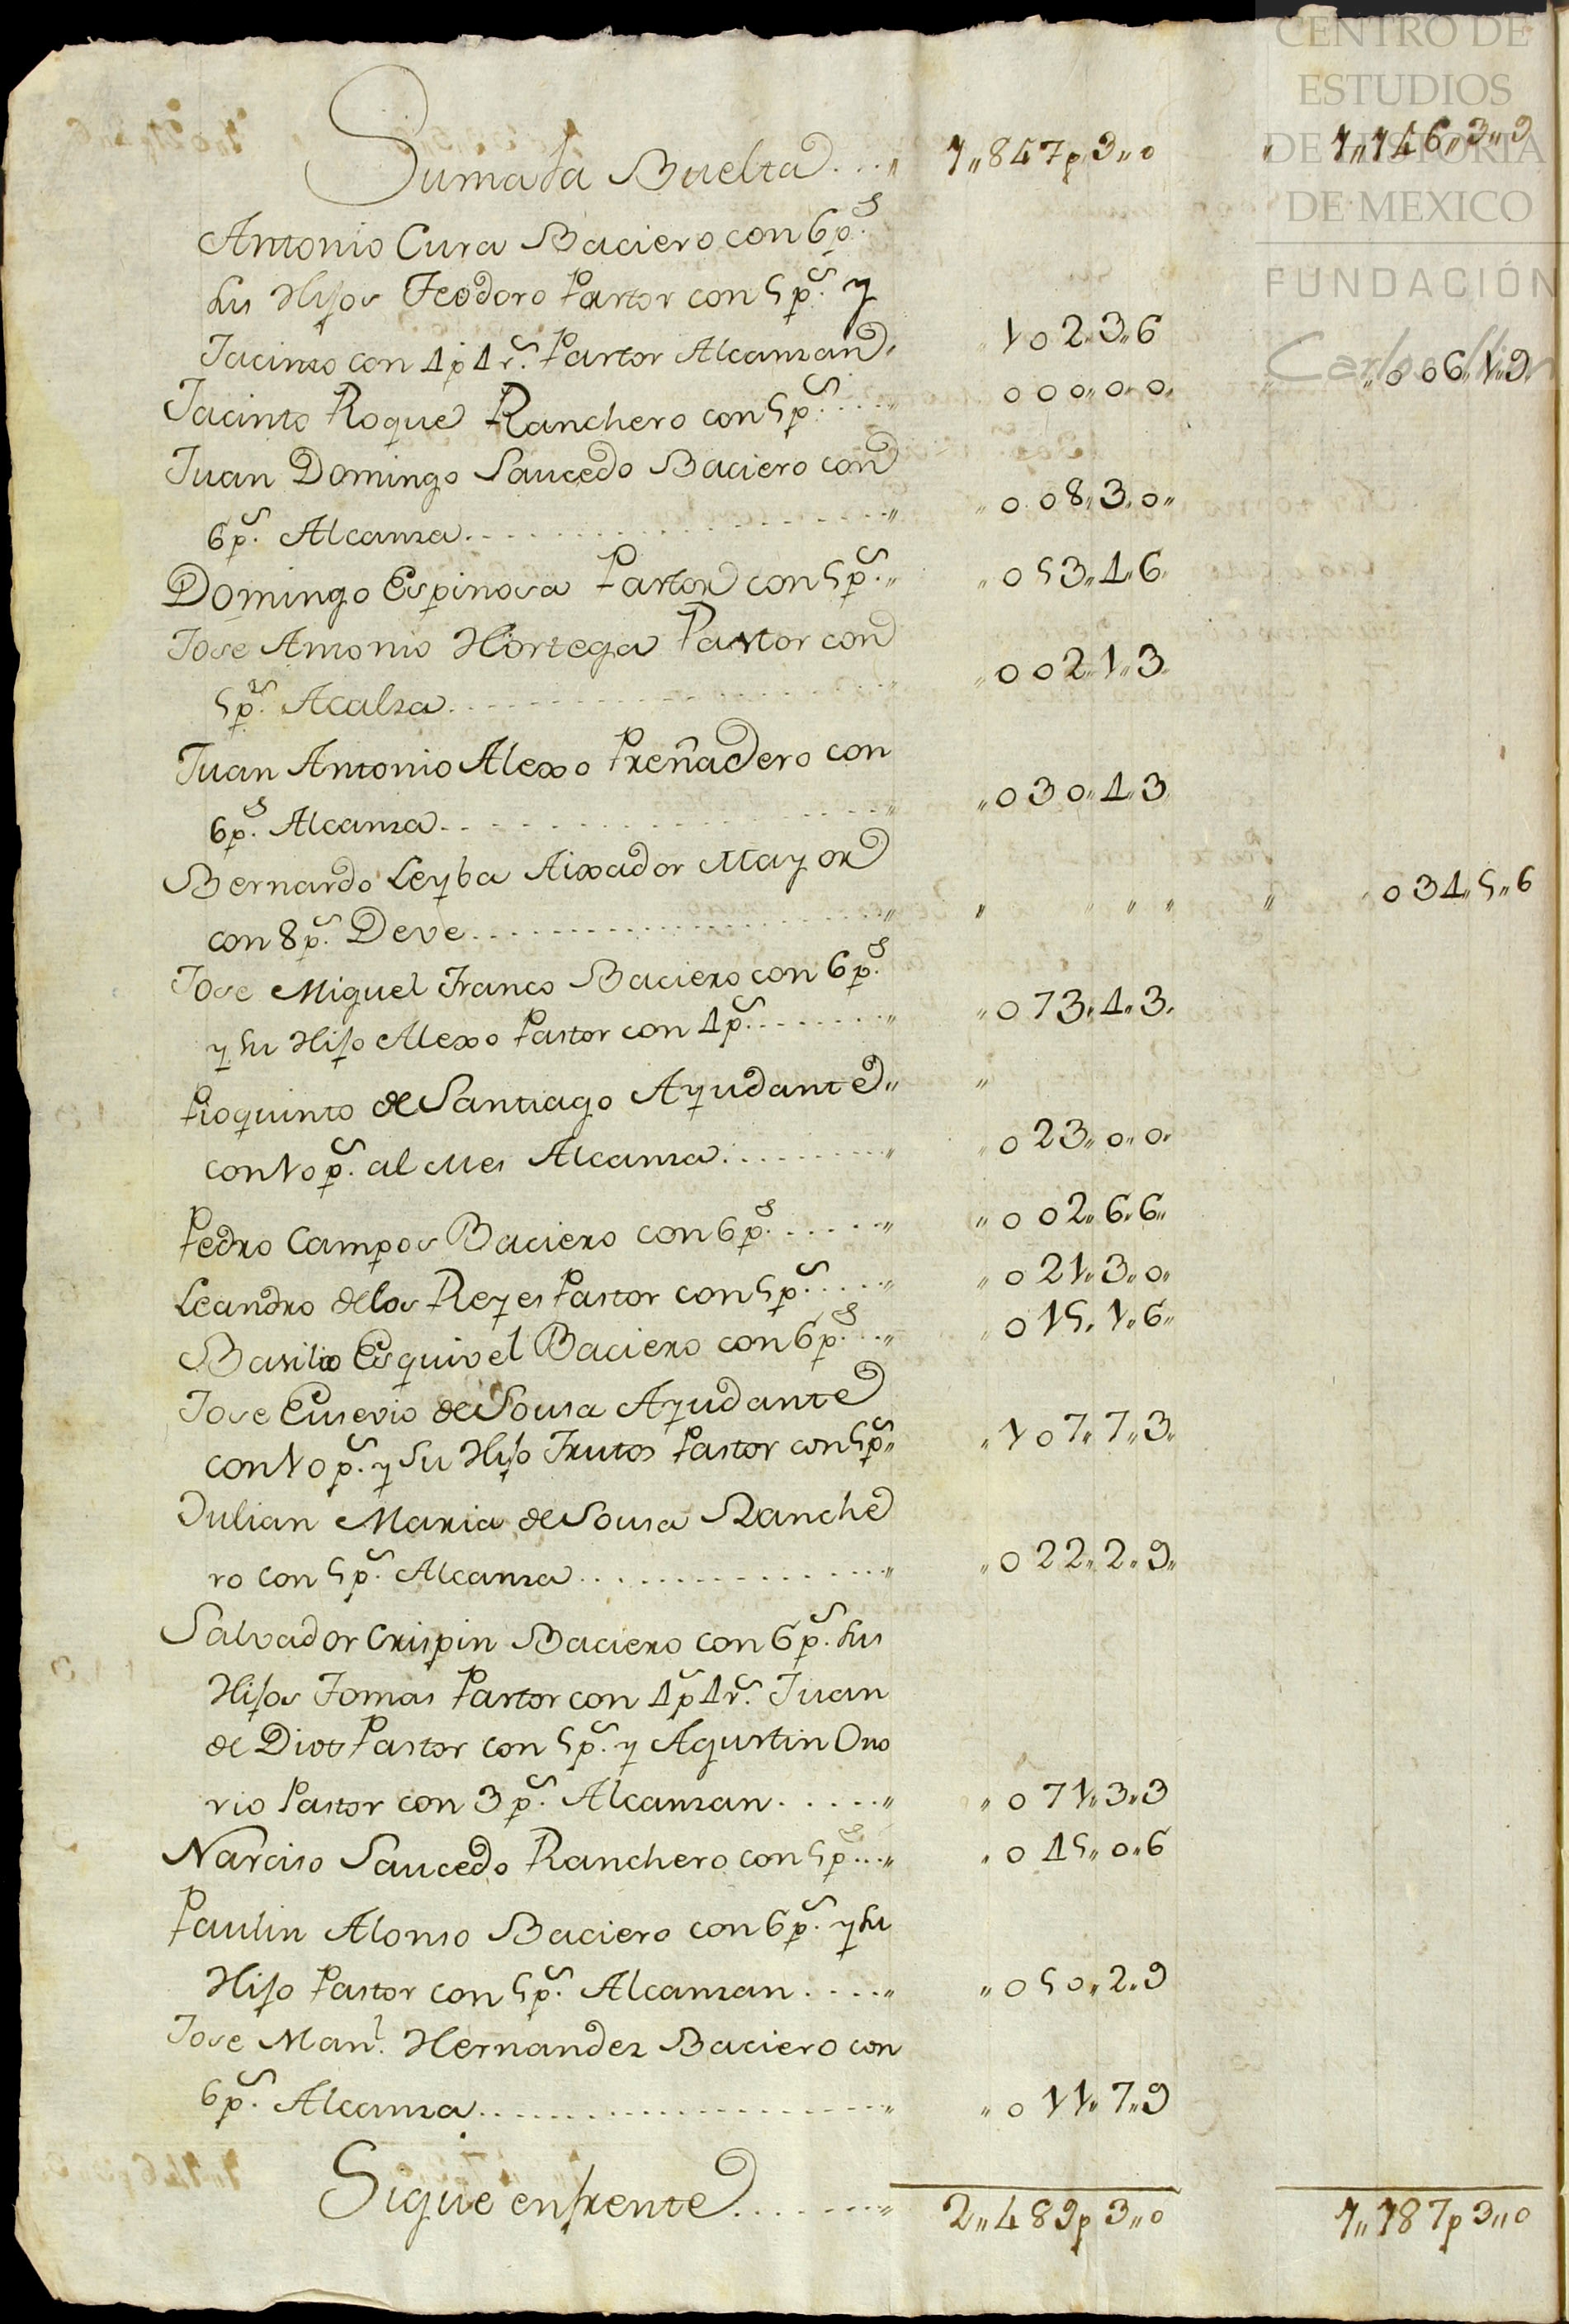 Suma la Buelta....,, 1,,847p3,,0 ,, 1,,146,,3,,9
Antonio Cura Baciero con 6p.s
sus Hijos Teodoro Pastor con 5p.s y
Jacinto con 4p4r.s Pastor Alcanzan,, 102,,3,,6
Jacinto Roque Ranchero con 5p.s....,, 000,,0,,0,, ,,006,,1,,9
Juan Domingo Saucedo Baciero con
6p.s Alcanza..................,, ,,008,,3,,0,,
Domingo Espinosa Pastor con 5p.s,, ,,053,,4,,6
Jose Antonio Hortega Pastor con
5p.s Acalza..................,, ,,002,,1,,3
Juan Antonio Alexo Preñadero con
6p.s Alcanza..................,, ,,030,,4,,3
Bernardo Leyba Aixador Mayor
con 8p.s Deve..................,, ,, ,, ,, ,, ,, 034,,5,,6
Jose Miguel Franco Baciero con 6p.s
y su Hijo Alexo Pastor con 4p.s.......,, ,,073,,4,,3
Pioquinto de Santiago Ayudante,, ,,
con 10p.s al Mes Alcanza..........,, ,,023,,0,,0
Pedro Campos Baciero con 6p.s......,, ,,002,,6,,6,,
Leandro de los Reyes Pastor con 5p.s....,, ,,021,,3,,0,,
Basilio Esquivel Baciero con 6p.s...,, ,,015,,1,,6,,
Jose Eusevio de Sousa Ayudante
con 10p.s y Su Hijo Frutos Pastor con 5p.s,, ,,107,,7,,3,,
Julian Maria de Sousa Ranche
ro con 5p.s Alcanza...............,, ,,022,,2,,9,,
Salvador Crispin Baciero con 6p.s sus
Hijos Tomas Pastor con 4p4r.s Juan
de Dios Pastor con 5p.s y Agustin Ono
rio Pastor con 3p.s Alcanzan......,, ,,071,,3,,3
Narciso Saucedo Ranchero con 5p.s...,, ,,045,,0,,6
Paulin Alonso Baciero con 6p.s y su
Hijo Pastor con 5p.s Alcanzan.....,, ,,050,,2,,9
Jose Man.l Hernandez Baciero con
6p.s Alcanza....................,, ,,011,,7,,9
Sigue enfrente........,, 2,,489p3,,0 1,,187p3,,0
CENTRO DE
ESTUDIOS
DE HISTORIA
DE MEXICO
FUNDACIÓN
Carlos Slim